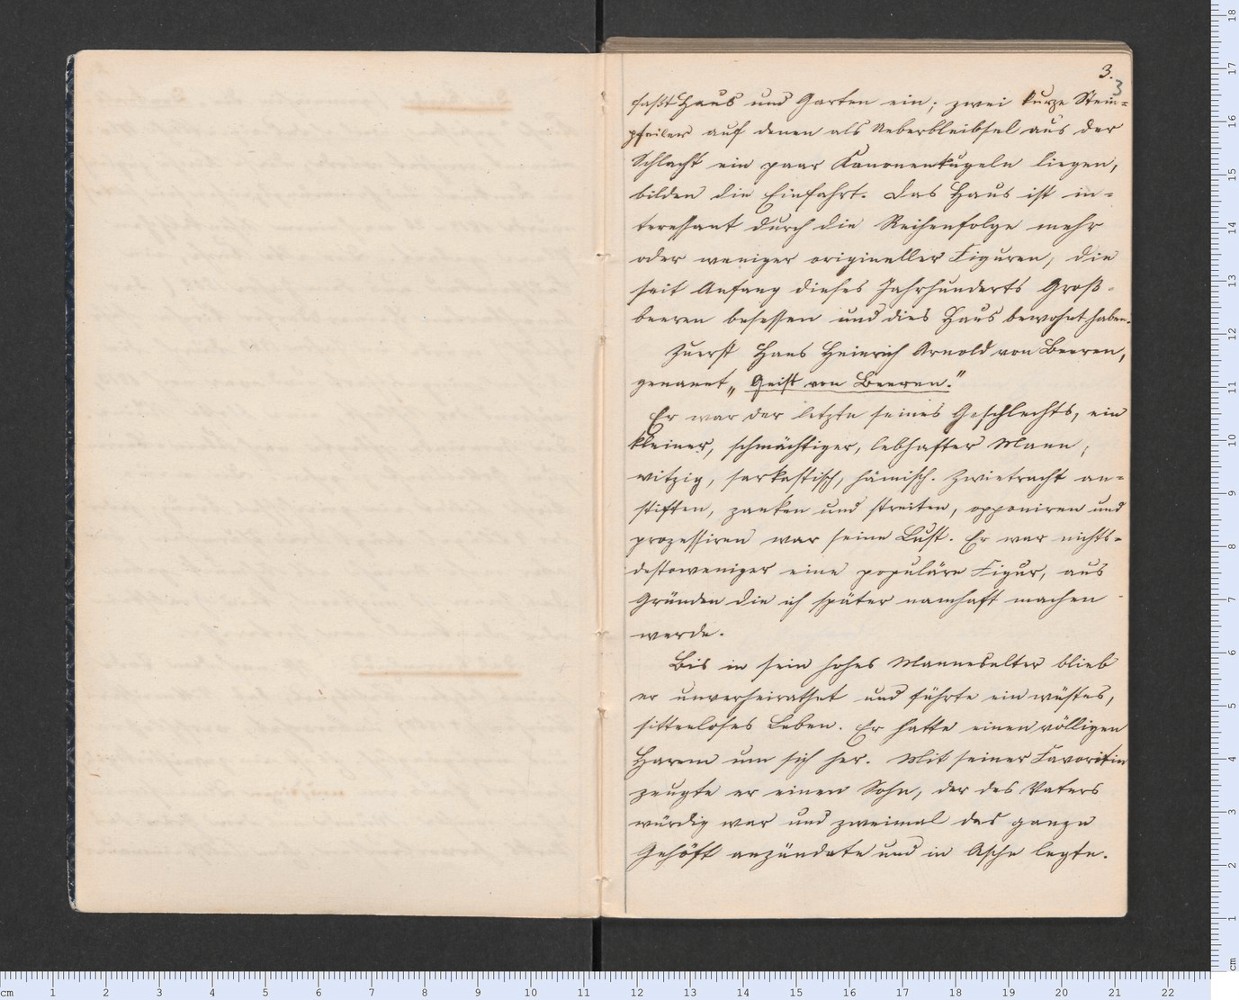 3.
3
faßt Haus und Garten ein; zwei kurze Stein=
pfeiler auf denen als Ueberbleibsel aus der
Schlacht ein paar Kanonenkugeln liegen,
bilden die Einfahrt. Das Haus ist in=
teressant durch die Reihenfolge mehr
oder weniger origineller Figuren, die
seit Anfang dieses Jahrhunderts Groß=
beeren besessen und dies Haus bewohnt haben.
Zuerst Hans Heinrich Arnold von Beeren,
genannt „Geist von Beeren."
Er war der letzte seines Geschlechts, ein
kleiner, schmächtiger, lebhafter Mann,
witzig, sarkastisch, hämisch. Zwietracht an=
stiften, zanken und streiten, opponiren und
prozessiren war seine Lust. Er war nichts=
destoweniger eine populäre Figur, aus
Gründen die ich später namhaft machen
werde.
Bis in sein hohes Mannesalter blieb
er unverheirathet und führte ein wüstes,
sittenloses Leben. Er hatte einen völligen
Harem um sich her. Mit seiner Favoritin
zeugte er einen Sohn, der des Vaters
würdig war und zweimal das ganze
Gehöft anzündete und in Asche legte.